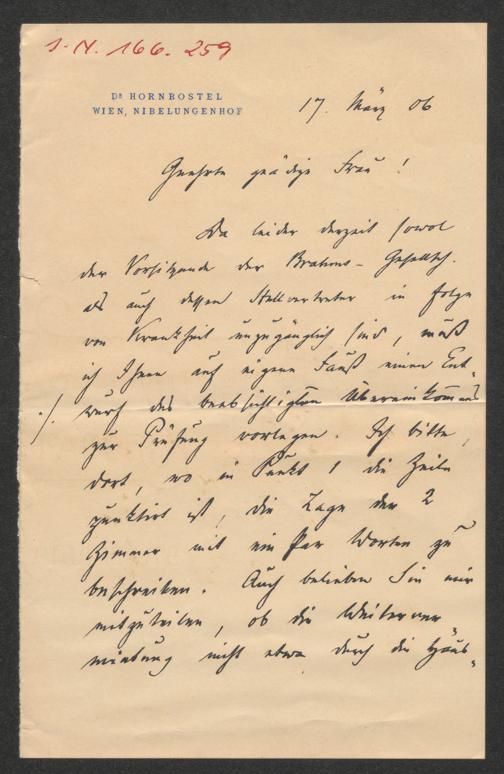 I. N. 166. 259
Dr HORNBOSTEL
WIEN, NIBELUNGENHOF
17. März 06
Geehrte gnädige Frau!
Da leider derzeit sowol
der Vorsitzende der Brahms-Gesellsch.
als auch dessen Stellvertreter in Folge
von Krankheit unzugänglich sind, muß
ich Ihnen auf eigene Faust einen Ent-
./. wurf des beabsichtigten Übereinkommens
zur Prüfung vorlegen. Ich bitte,
dort, wo in Punkt 1 die Zeile
punktirt ist, die Lage der 2
Zimmer mit ein Par Worten zu
beschreiben. Auch belieben Sie mir
mitzuteilen, ob die Weiterver-
mietung nicht etwa durch die Haus-